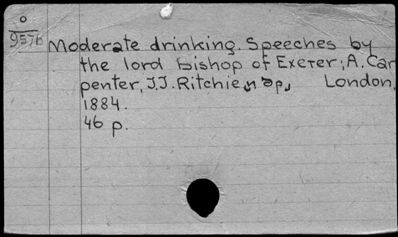 0
957b
Moderate drinking. Speeches by
the lord bishop of Exeter, A. Car
penter, J.J. Ritchie, London,
1884.
46 p.